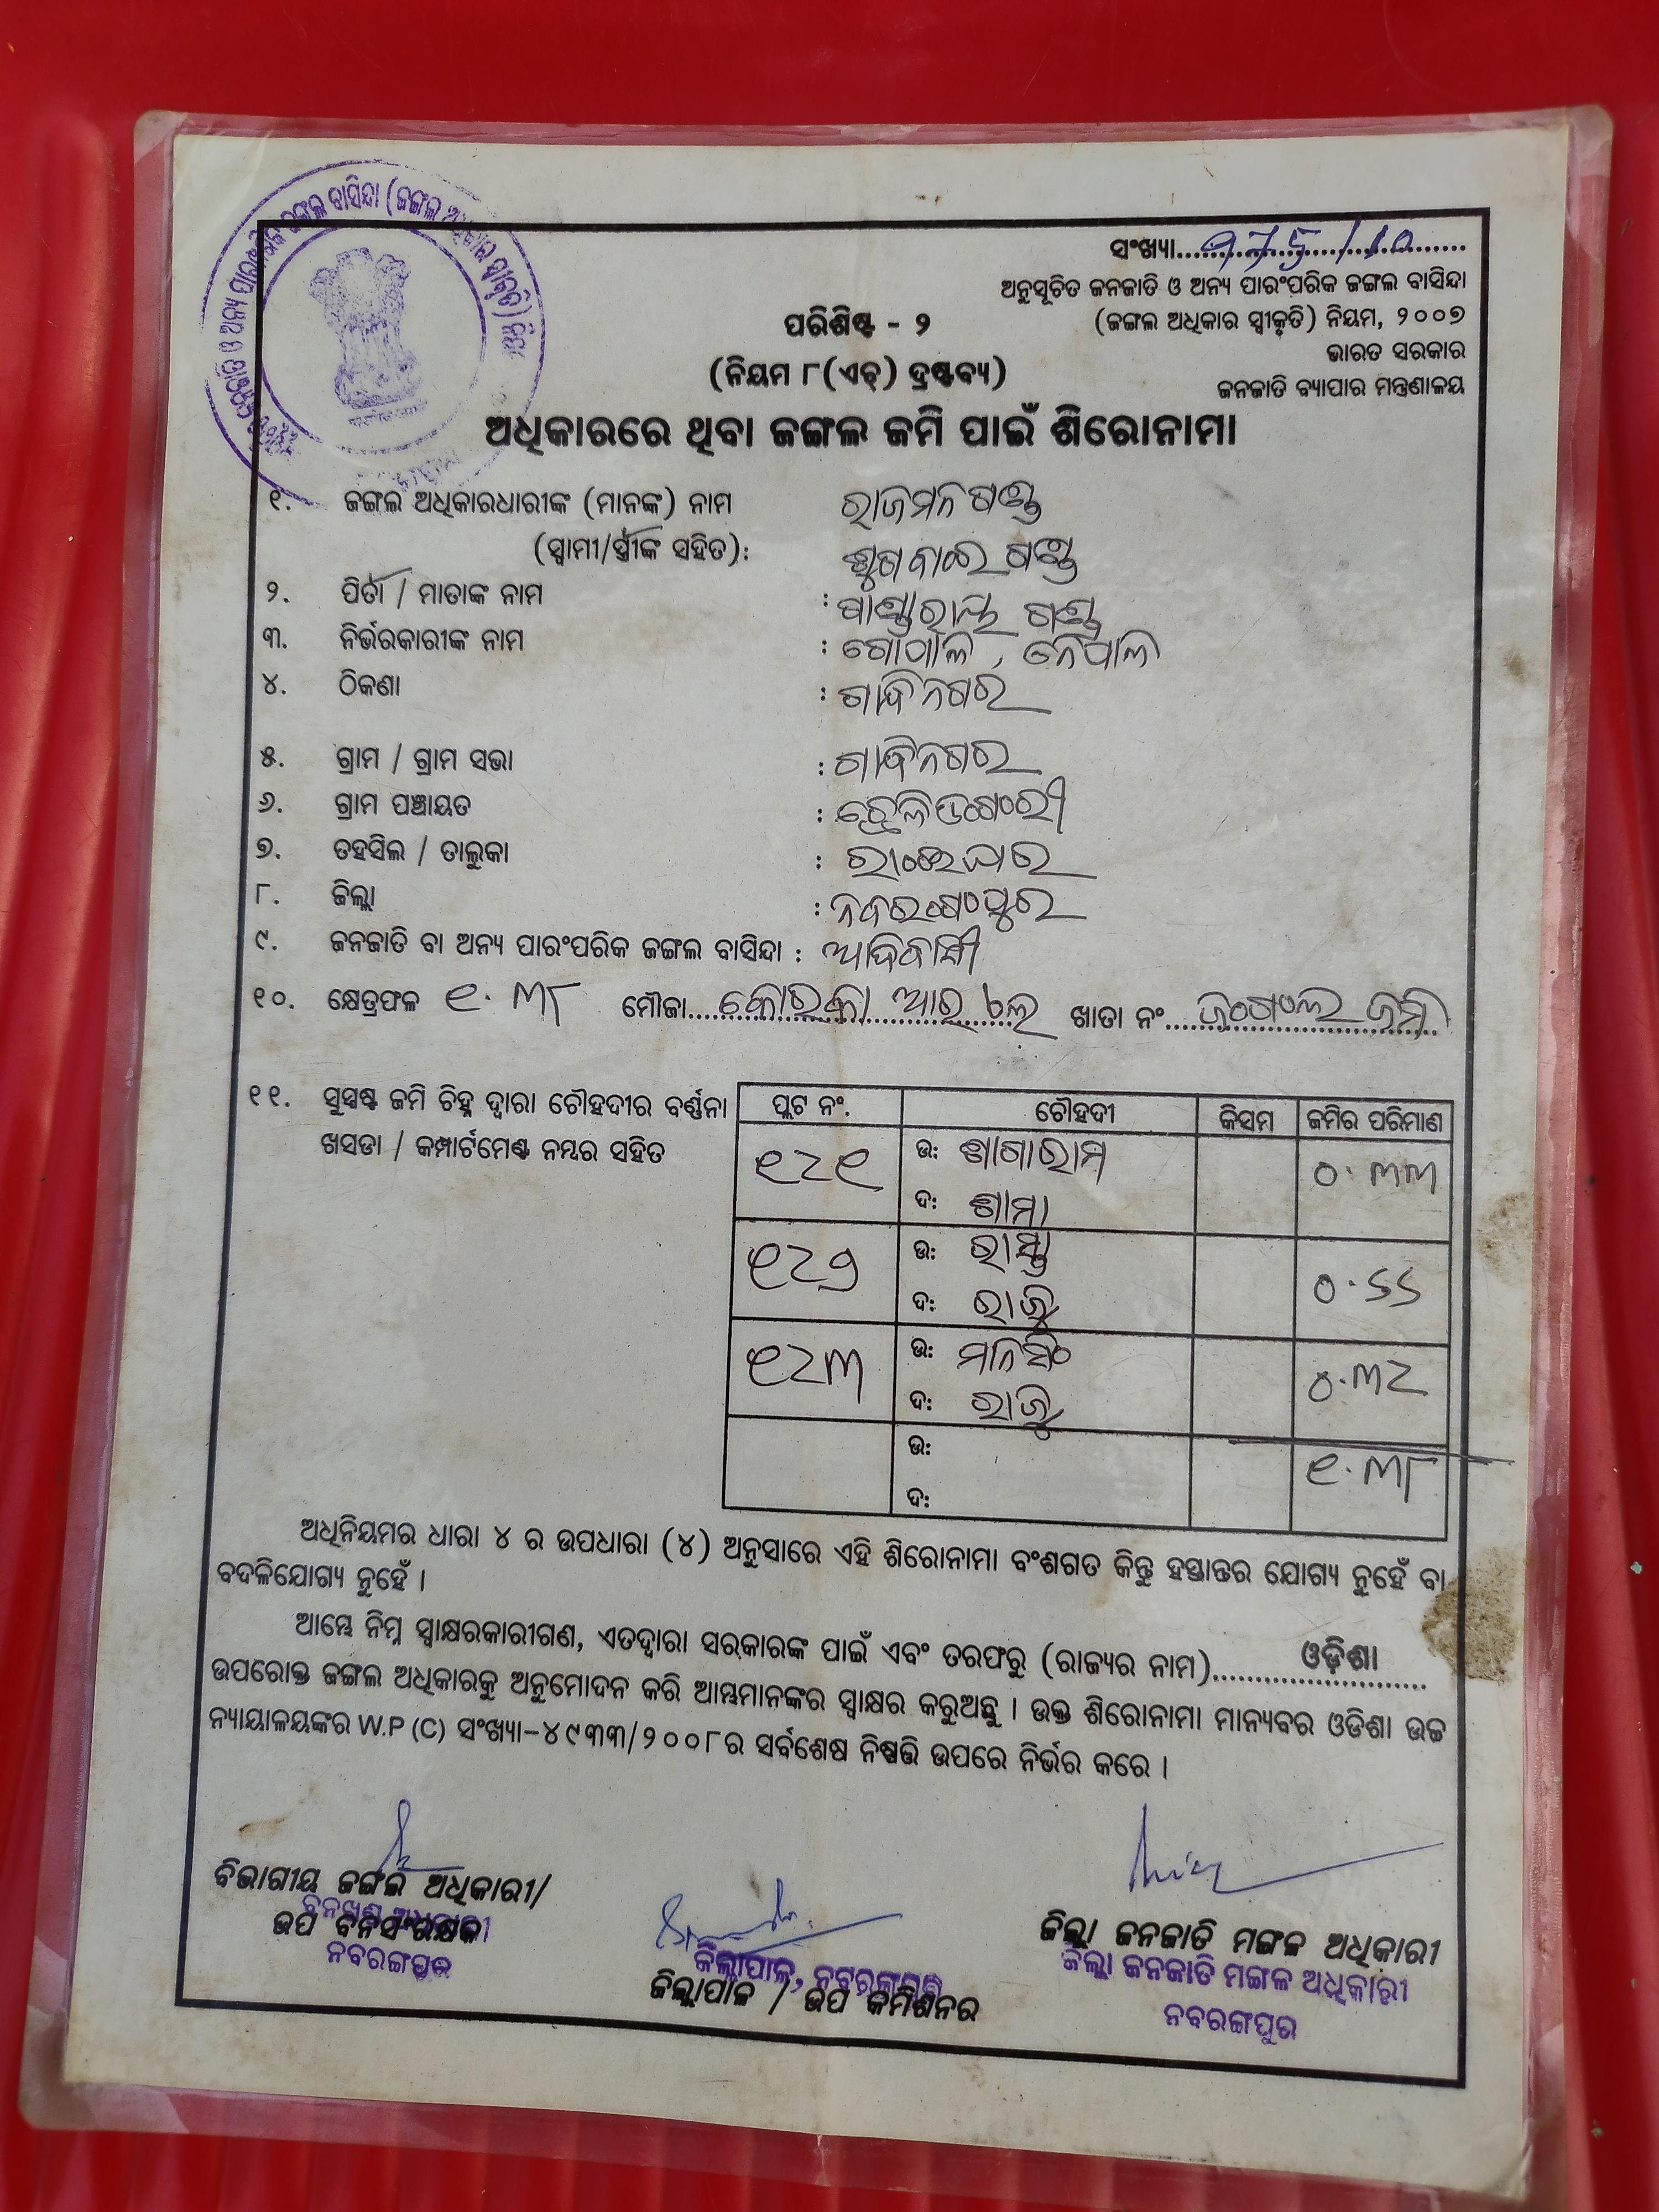 ସଂଖ୍ୟା
ଅନୁସୂଚିତ ଜନଜାତି ଓ ଅନ୍ୟ ପାରଂପରିକ ଜଙ୍ଗଲ ବାସିନ୍ଦା
(ଜଙ୍ଗଲ ଅଧିକାର ସ୍ୱୀକୃତି) ନିୟମ, ୨୦୦୭
ଭାରତ ସରକାର
ଜନଜାତି ବ୍ୟାପାର ମନ୍ତ୍ରଣାଳୟ
ପରିଶିଷ୍ଟ - ୨
(ନିୟମ ୮(ଏଚ୍) ଦ୍ରଷ୍ଟବ୍ୟ)
ଅଧିକାରରେ ଥିବା ଜଙ୍ଗଲ ଜମି ପାଇଁ ଶିରୋନାମା
୧. ଜଙ୍ଗଲ ଅଧିକାରଧାରୀଙ୍କ (ମାନଙ୍କ) ନାମ ରାଜମନ ଗଣ୍ଡ
(ସ୍ୱାମୀ/ସ୍ତ୍ରୀଙ୍କ ସହିତ): ଗଣ୍ଡ
୨. ପିତା / ମାତାଙ୍କ ନାମ : ଗଣ୍ଡ
୩. ନିର୍ଭରକାରୀଙ୍କ ନାମ : ଗୋପାଳ, ନେପାଲ
୪. ଠିକଣା : ଗାନ୍ଧିନଗର
୫. ଗ୍ରାମ / ଗ୍ରାମ ସଭା : ଗାନ୍ଧିନଗର
୬. ଗ୍ରାମ ପଞ୍ଚାୟତ :
୭. ତହସିଲ / ତାଲୁକା :
୮. ଜିଲ୍ଲା : ନବରଙ୍ଗପୁର
୯. ଜନଜାତି ବା ଅନ୍ୟ ପାରଂପରିକ ଜଙ୍ଗଲ ବାସିନ୍ଦା : ଆଦିବାସୀ
୧୦. କ୍ଷେତ୍ରଫଳ ୧.୩୮ ମୌଜା ଖାତା ନଂ ଜଙ୍ଗଲ ଜମି
୧୧. ସୁସ୍ପଷ୍ଟ ଜମି ଚିହ୍ନ ଦ୍ୱାରା ଚୌହଦୀର ବର୍ଣ୍ଣନା
ଖସଡା / କମ୍ପାର୍ଟମେଣ୍ଟ ନମ୍ବର ସହିତ
ପ୍ଲଟ ନଂ. ଚୌହଦୀ କିସମ ଜମିର ପରିମାଣ
୧୨୧ ଉ: ୦.୩୩
ଦ:
୧୨୨ ଉ: ରାସ୍ତା
ଦ: ରାଜୁ
୧୨୩ ଉ: ମାନସିଂ ୦.୩୨
ଦ: ରାଜୁ
ଉ: ୧.୩୮
ଦ:
ଅଧିନିୟମର ଧାରା ୪ ର ଉପଧାରା (୪) ଅନୁସାରେ ଏହି ଶିରୋନାମା ବଂଶଗତ କିନ୍ତୁ ହସ୍ତାନ୍ତର ଯୋଗ୍ୟ ନୁହେଁ ବା
ବଦଳିଯୋଗ୍ୟ ନୁହେଁ ।
ଆମ୍ଭେ ନିମ୍ନ ସ୍ୱାକ୍ଷରକାରୀଗଣ, ଏତଦ୍ୱାରା ସରକାରଙ୍କ ପାଇଁ ଏବଂ ତରଫରୁ (ରାଜ୍ୟର ନାମ) ଓଡ଼ିଶା
ଉପରୋକ୍ତ ଜଙ୍ଗଲ ଅଧିକାରକୁ ଅନୁମୋଦନ କରି ଆମ୍ଭମାନଙ୍କର ସ୍ୱାକ୍ଷର କରୁଅଛୁ । ଉକ୍ତ ଶିରୋନାମା ମାନ୍ୟବର ଓଡିଶା ଉଚ୍ଚ
ନ୍ୟାୟାଳୟଙ୍କର W.P (C) ସଂଖ୍ୟା-୪୯୩୩/୨୦୦୮ର ସର୍ବଶେଷ ନିଷ୍ପତ୍ତି ଉପରେ ନିର୍ଭର କରେ ।
ବିଭାଗୀୟ ଜଙ୍ଗଲ ଅଧିକାରୀ/
ଉପ ବନସଂରକ୍ଷକ
ନବରଙ୍ଗପୁର
ଜିଲ୍ଲାପାଳ, ନବରଙ୍ଗପୁର
ଜିଲ୍ଲାପାଳ / ଉପ କମିଶନର
ଜିଲ୍ଲା ଜନଜାତି ମଙ୍ଗଳ ଅଧିକାରୀ
ଜିଲ୍ଲା ଜନଜାତି ମଙ୍ଗଳ ଅଧିକାରୀ
ନବରଙ୍ଗପୁର